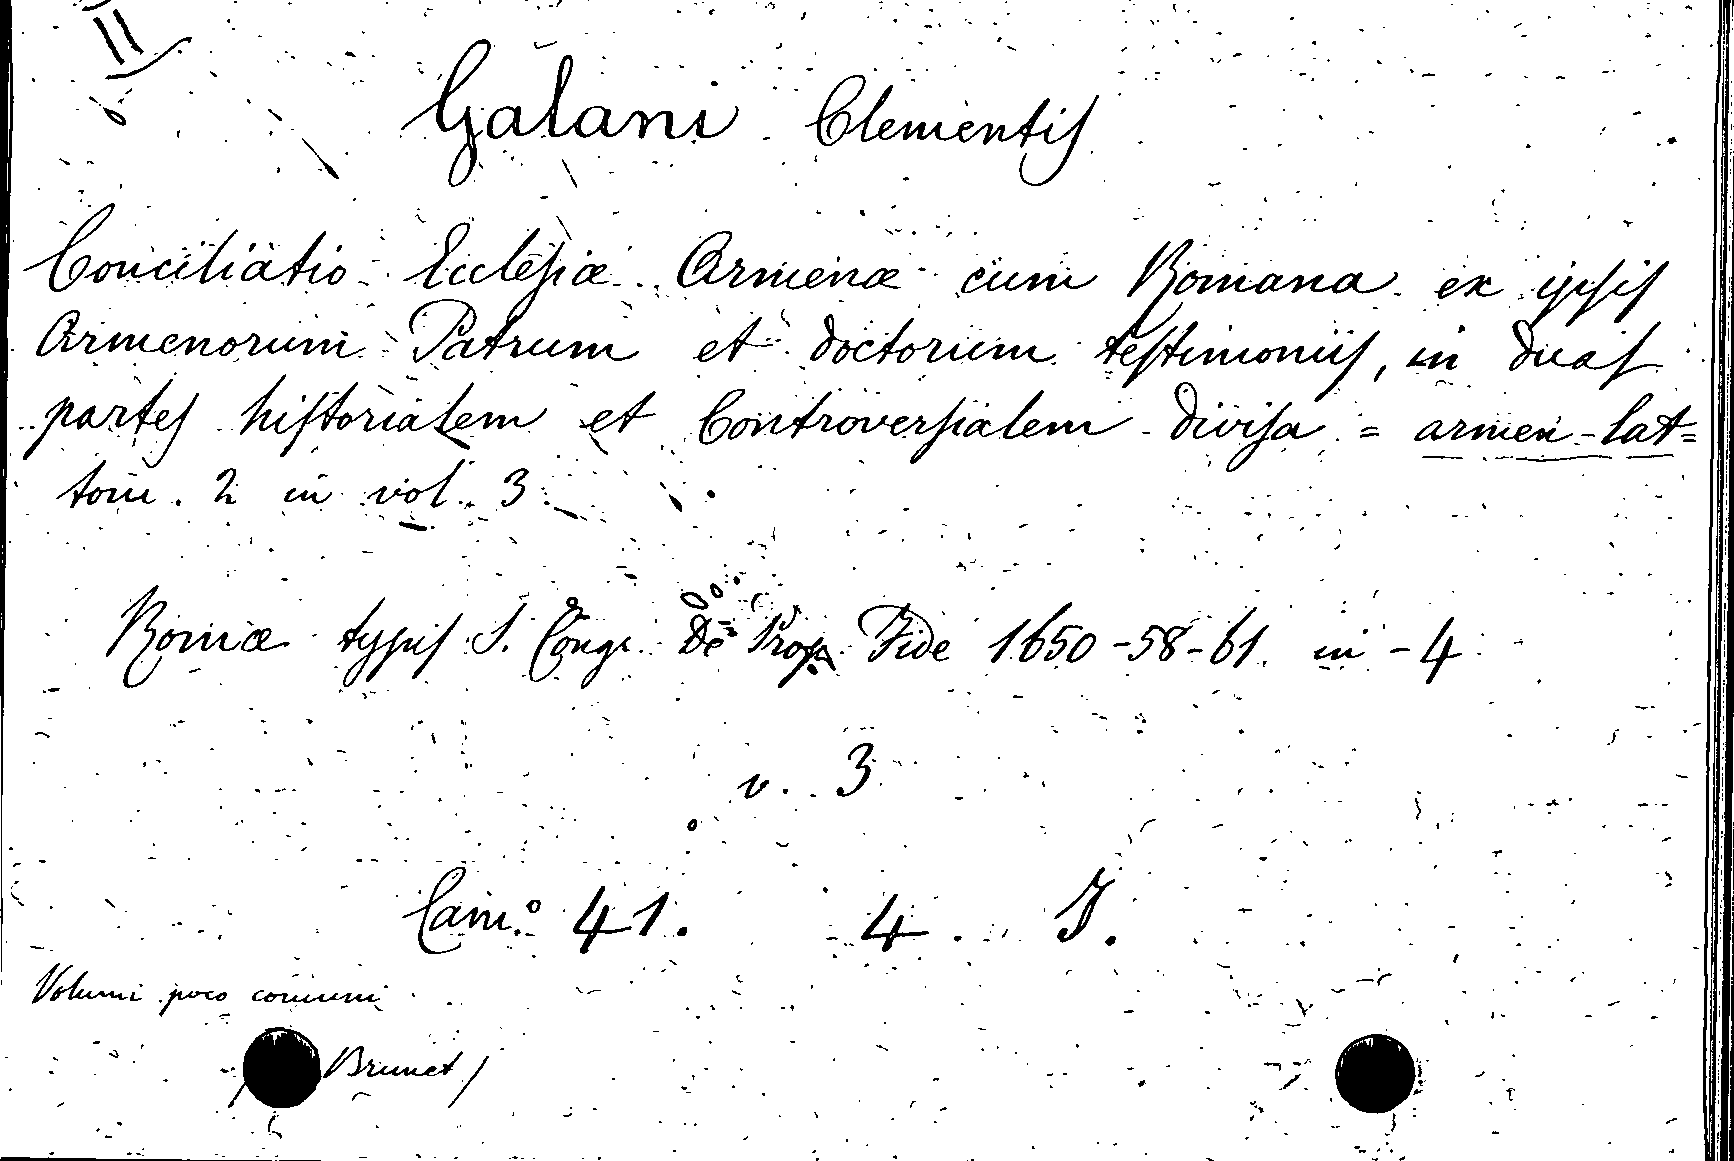 II
Galani Clementis
Conciliatio Ecclesiæ Armenæ cum Romana ex ipsis
Armenorum Patrum et doctorum testimoniis, in duas
partes historialem et Controversialem divisa = armen-lat=
tom. 2 in vol. 3
Romæ typis S. Congr. De Prop. Fide 1650-58-61. in-4
v. 3
Cam.º 41. 4. I.
Volumi poco comuni
Brunet)